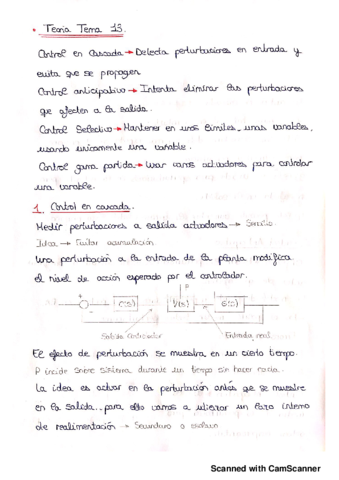 • Teoria Tema 13.
Control en Cascada → Detecta perturbaciones en entrada y
evita que se propagen
Control anticipativo → Intenta eliminar las perturbaciones
que afecten a la salida.
Control Selectivo → Mantener en unos límites, unas variables,
usando únicamente una variable.
Control gama partida → Usar varios actuadores para controlar
una variable.
1. Control en cascada.
Medir perturbaciones a salida actuadores → Sencillo
Idea → Evitar acumulación
Una perturbación a la entrada de la planta modifica
el nivel de acción esperado por el controlador.
P
C(s) V(s) G(s)
Salida Controlador Entrada real
El efecto de perturbación se muestra en un cierto tiempo.
P incide sobre sistema durante un tiempo sin hacer nada.
La idea es actuar en la perturbación antes que se muestre
en la salida, para ello vamos a utilizar un lazo interno
de realimentación → Secundario o esclavo
Scanned with CamScanner